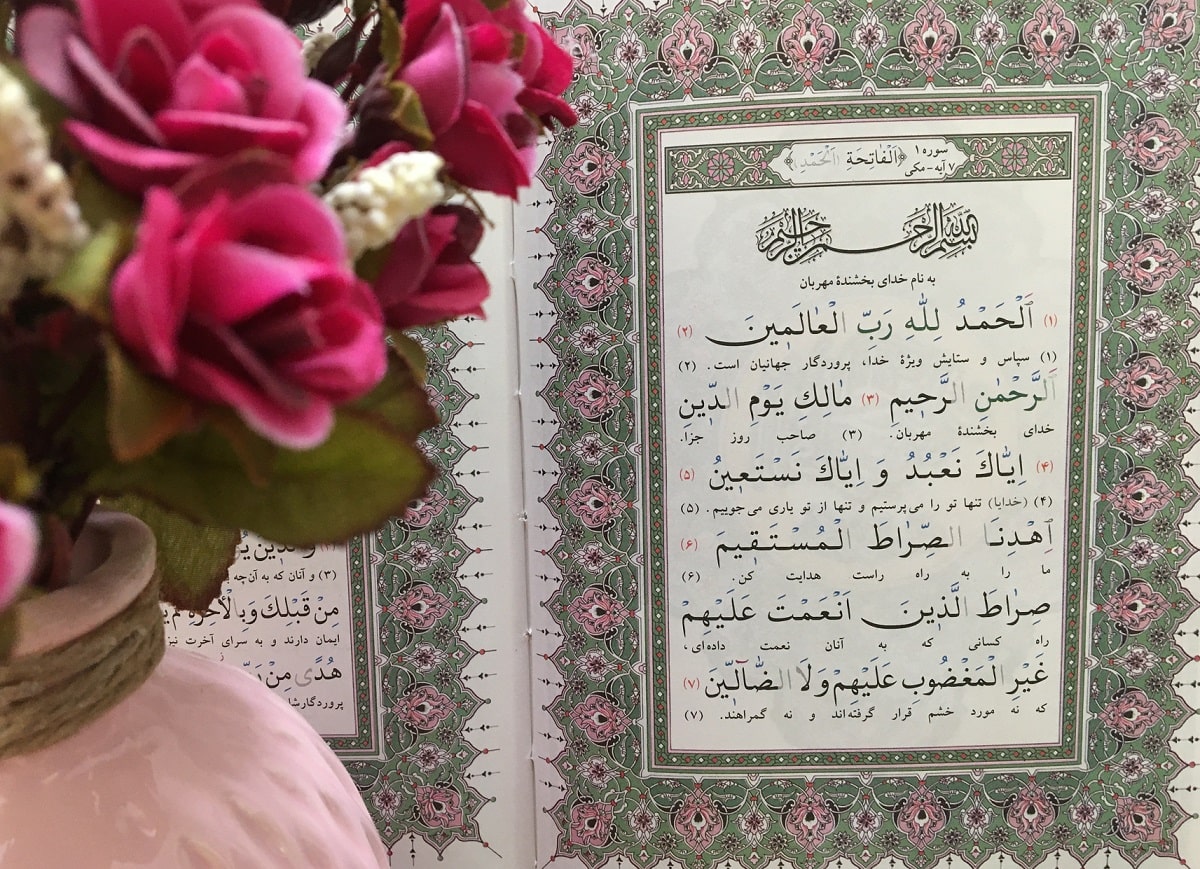 سوره ۱ ﴿اَلْفاتِحَةِ (اَلْحَمْدِ)﴾
۷ آیه-مکی
بِسْمِ اللّٰهِ الرَّحْمٰنِ الرَّحيمِ
به نام خدای بخشندهٔ مهربان
(۱) اَلْحَمْدُ لِلّٰهِ رَبِّ الْعٰالَمينَ (۲)
(۱) سپاس و ستایش ویژهٔ خدا، پروردگار جهانیان است. (۲)
اَلرَّحْمٰنِ الرَّحيمِ (۳) مٰالِكِ يَوْمِ الدّينِ
خدای بخشندهٔ مهربان. (۳) صاحب روز جزا.
(۴) اِيّٰاكَ نَعْبُدُ وَ اِيّٰاكَ نَسْتَعينُ (۵)
(۴) (خدایا) تنها تو را می‌پرستیم و تنها از تو یاری می‌جوییم. (۵)
اِهْدِنَا الصِّرٰاطَ الْمُسْتَقيمَ (۶)
ما را به راه راست هدایت کن. (۶)
صِرٰاطَ الَّذينَ اَنْعَمْتَ عَلَيْهِمْ
راه کسانی که به آنان نعمت داده‌ای،
غَيْرِ الْمَغْضُوبِ عَلَيْهِمْ وَلَا الضّٰآلّينَ (۷)
که نه مورد خشم قرار گرفته‌اند و نه گمراهند. (۷)
وَ الَّذينَ
(۳) و آنان که به آن‌چه
مِنْ قَبْلِكَ وَ بِالْاٰخِرَةِ
ایمان دارند و به سرای آخرت نیز
هُدًى مِنْ